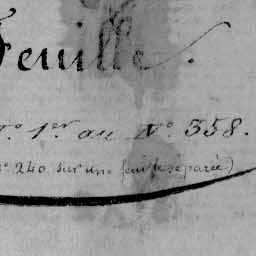 Feuille.
N.° 1.er au N.° 358.
N.° 240 sur une feuille séparée)